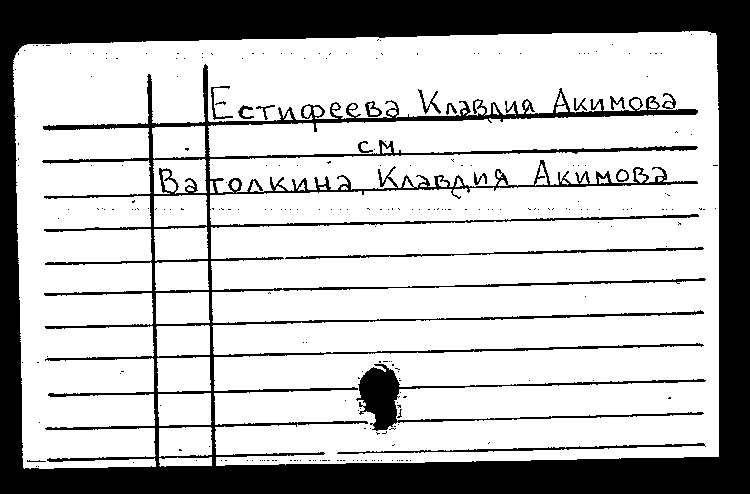 Естифеева, Клавдия Акимова
см.
Ватолкина, Клавдия Акимова